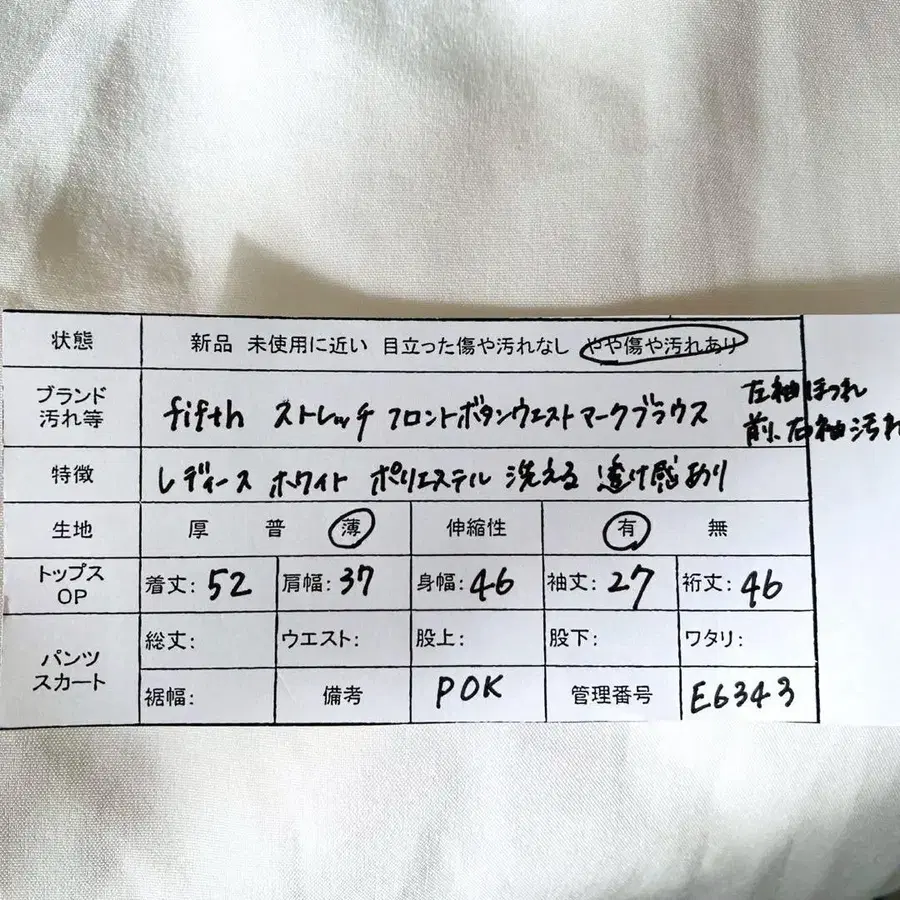 状態 新品 未使用に近い 目立った傷や汚れなし やや傷や汚れあり
ブランド
汚れ等
fifth ストレッチ フロントボタンウエストマークブラウス
左袖ほつれ
前、右袖汚れ
特徴 レディース ホワイト ポリエステル 洗える 透け感あり
生地 厚 普 薄 伸縮性 有 無
トップス
OP
着丈: 52 肩幅: 37 身幅: 46 袖丈: 27 裄丈: 46
パンツ
スカート
総丈: ウエスト: 股上: 股下: ワタリ:
裾幅: 備考 POK 管理番号 E6343